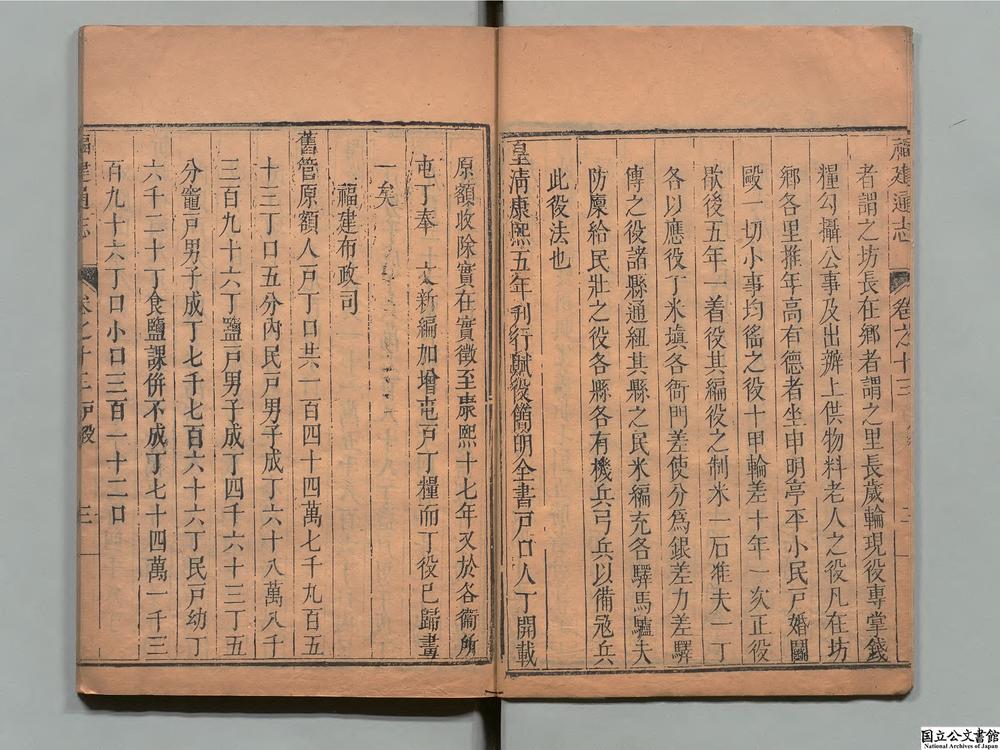 福建通志 卷之十三
者謂之坊長在鄉者謂之里長歲輪現役專堂錢
糧勾攝公事及出辦上供物料老人之役凡在坊
鄉各里推年高有德者坐申明亭平小民戶婚鬭
毆一切小事均徭之役十甲輪差十年一次正役
歇後五年一着役其編役之制米一石准夫一丁
各以應役丁米塡各衙門差使分爲銀差力差驛
傳之役諸縣通紐其縣之民米編充各驛馬驢夫
防廩給民壯之役各縣各有機兵弓兵以備冦兵
此役法也
皇淸康熙五年刊行賦役簡明全書戸口人丁開載
原額收除實在實徵至康熙十七年又於各衞所
屯丁奉 文新編加增屯戸丁糧而丁役已歸畫
一矣
福建布政司
舊管原額人戸丁口共一百四十四萬七千九百五
十三丁口五分內民戸男子成丁六十八萬八千
三百九十六丁鹽戸男子成丁四千六十三丁五
分竈戸男子成丁七千七百六十六丁民戸幼丁
六千二十丁食鹽課併不成丁七十四萬一千三
百九十六丁口小口三百一十二口
福建通志 卷之十三 戸役 三
国立公文書館
National Archives of Japan